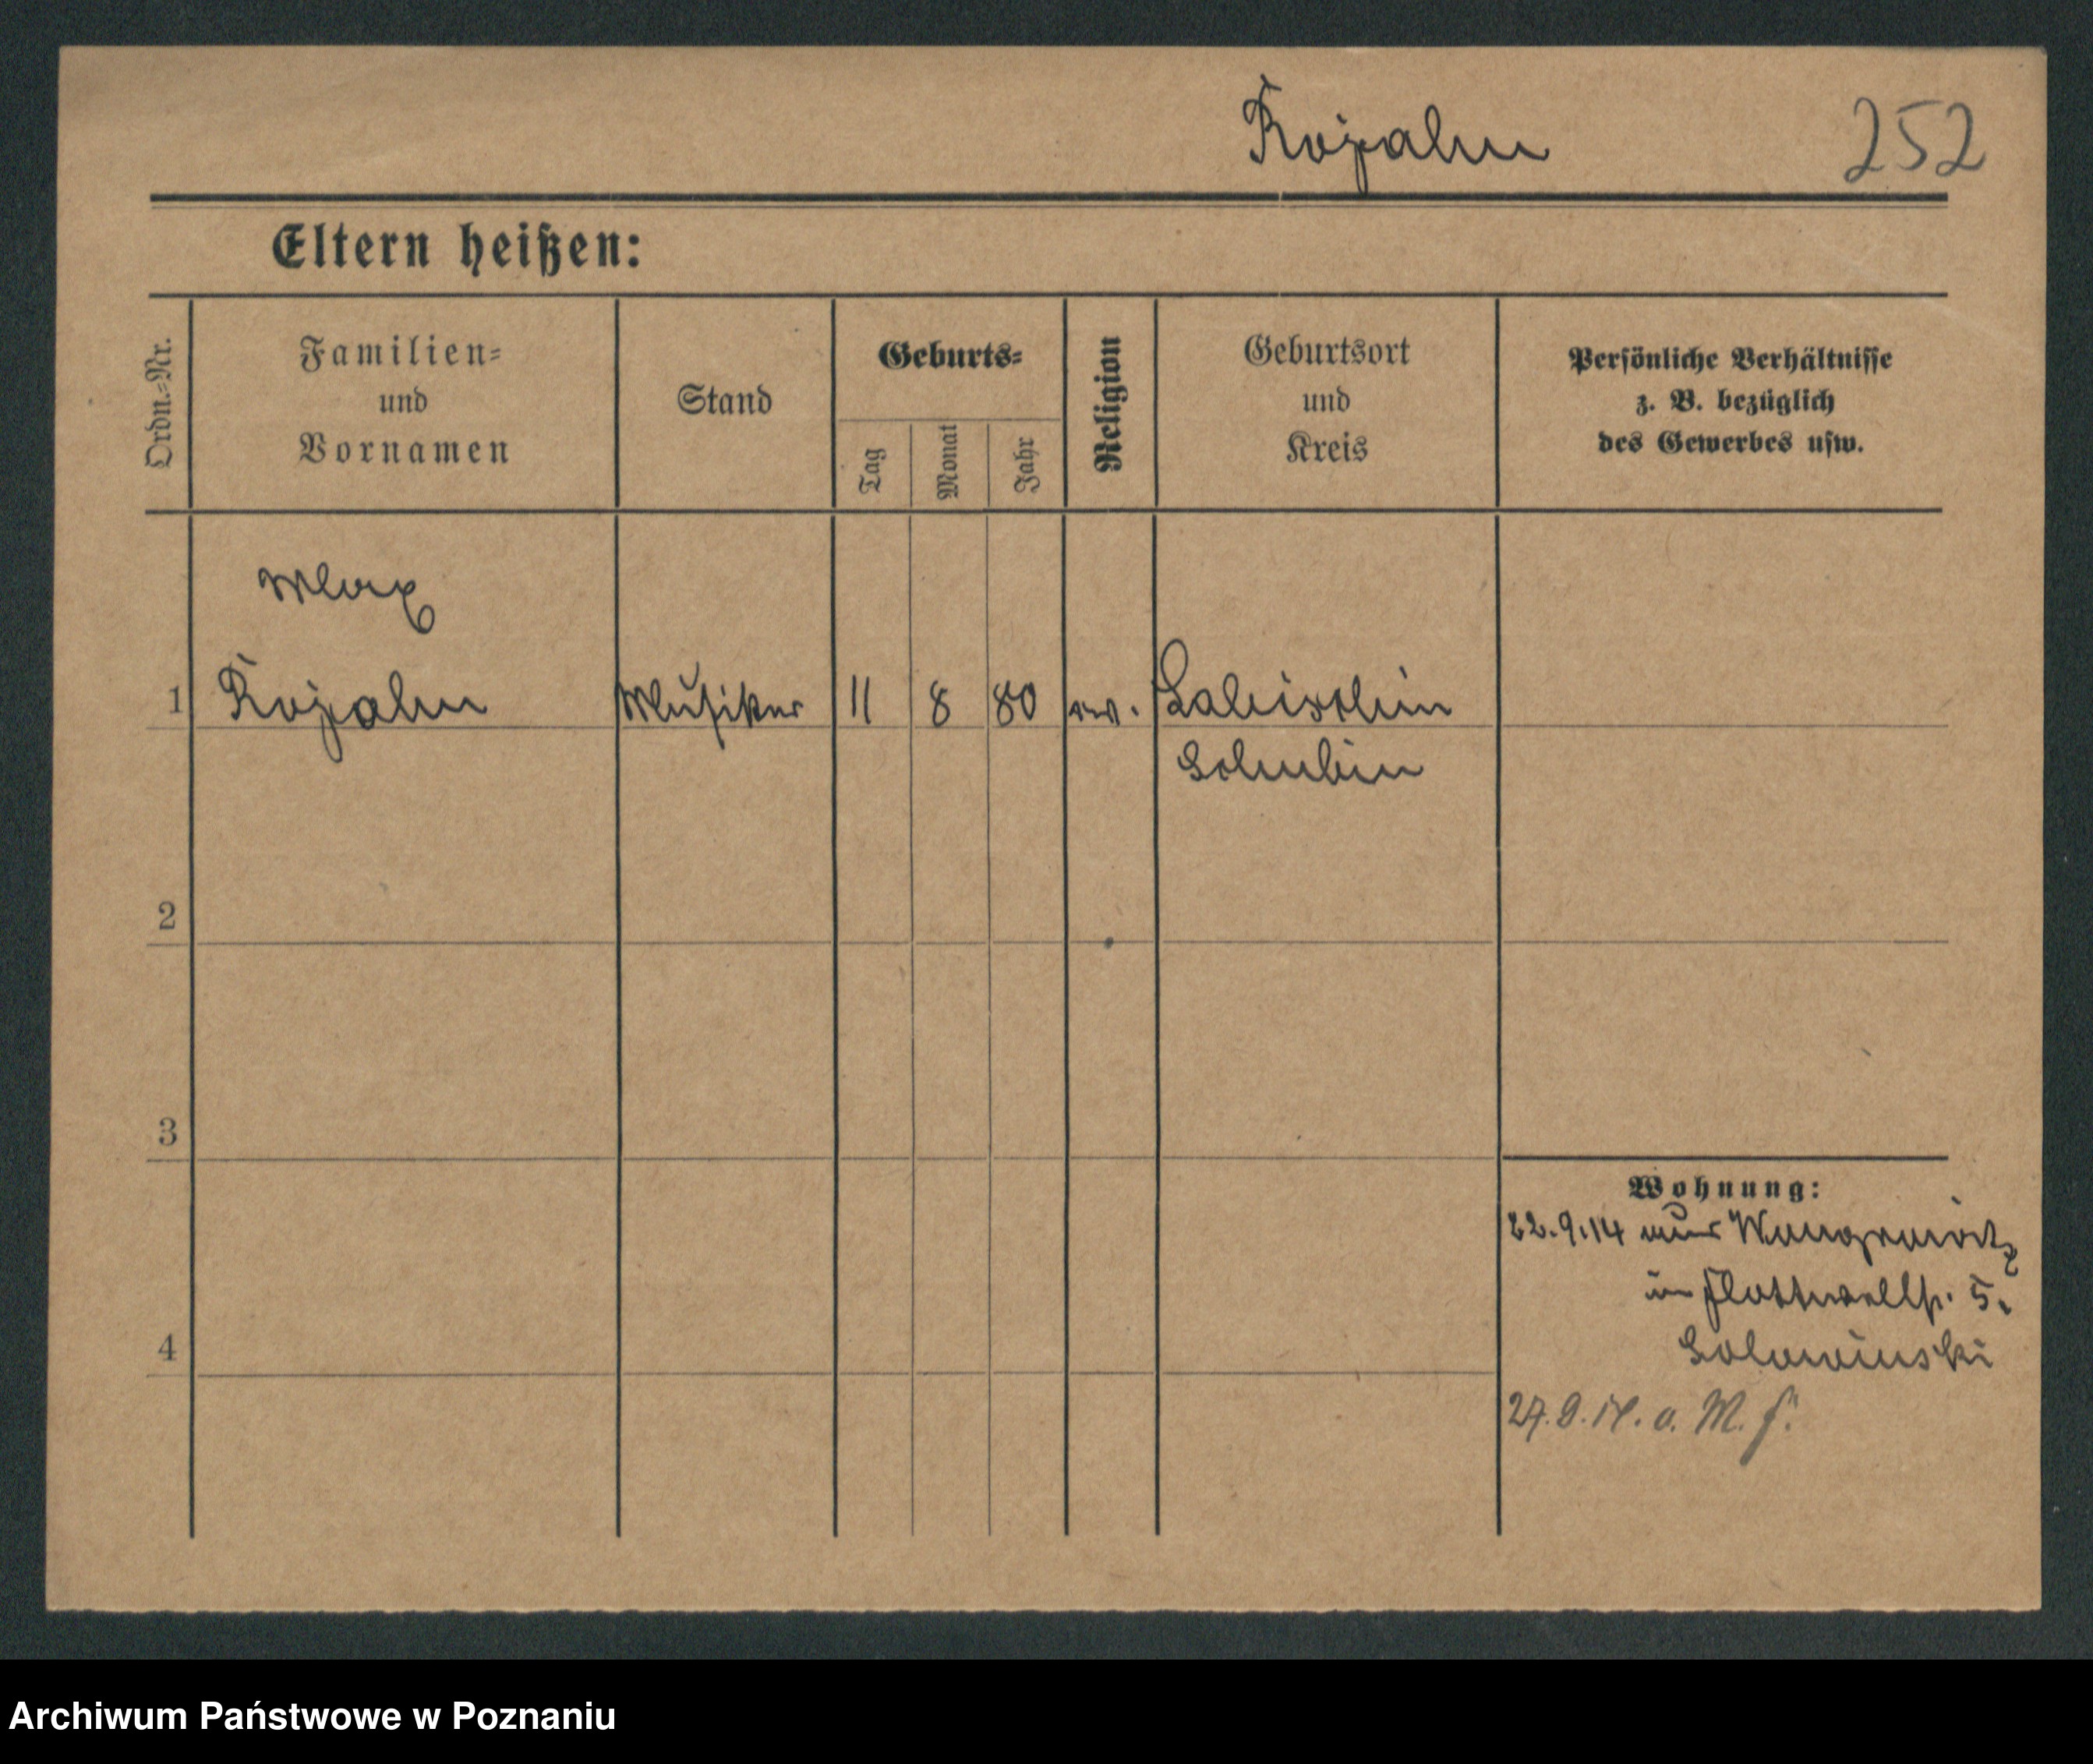 Rojahn 252
Eltern heißen:
Ordn.-Nr.
Familien-
und
Vornamen
Stand
Geburts-
Tag
Monat
Jahr
Religion
Geburtsort
und
Kreis
Persönliche Verhältnisse
z. B. bezüglich
des Gewerbes usw.
Max
1 Rojahn Musiker 11 8 80 ev. Labischin
Schubin
2
3
Wohnung:
22.9.14 aus Wongrowitz
in Flottwellstr. 5.
4
27.9.14. v. M.
Archiwum Państwowe w Poznaniu